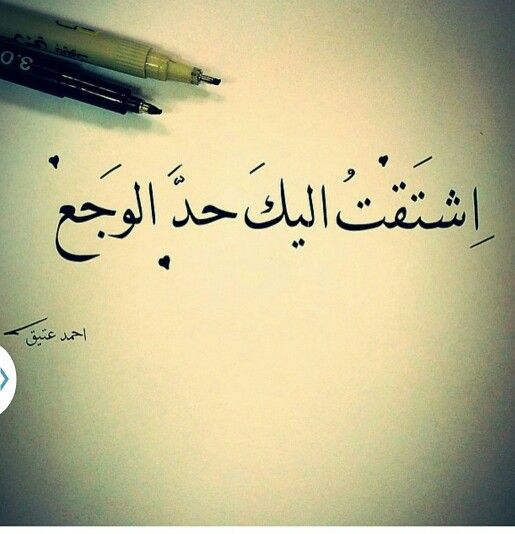 3.0
اِشتَقتُ اليكَ حدَّ الوَجَع
احمد عتيق